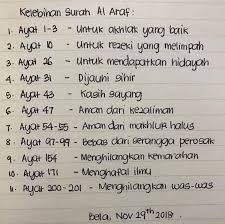 Kelebihan Surah Al Araf:
1. Ayat 1-3 - Untuk akhlak yang baik
2. Ayat 10 - Untuk rezeki yang melimpah
3. Ayat 26 - Untuk mendapatkan hidayah
4. Ayat 31 - Dijauhi sihir
5. Ayat 43 - Kasih sayang
6. Ayat 47 - Aman dari kezaliman
7. Ayat 54-55 - Aman dari makhluk halus
8. Ayat 97-99 - Bebas dari serangga perosak
9. Ayat 154 - Menghilangkan kemarahan
10. Ayat 171 - Menghafal ilmu
11. Ayat 200-201 - Menghilangkan was-was
Bela, Nov 29th 2018